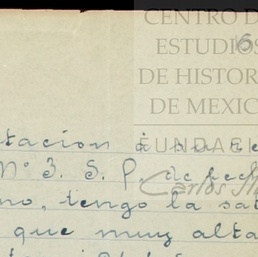 CENTRO D
ESTUDIOS
DE HISTOR
DE MEXIC
FUNDAC
Carlos Sl
tacion á su
Nº 3. S. P. de fech
no, tengo la sat
que muy alta